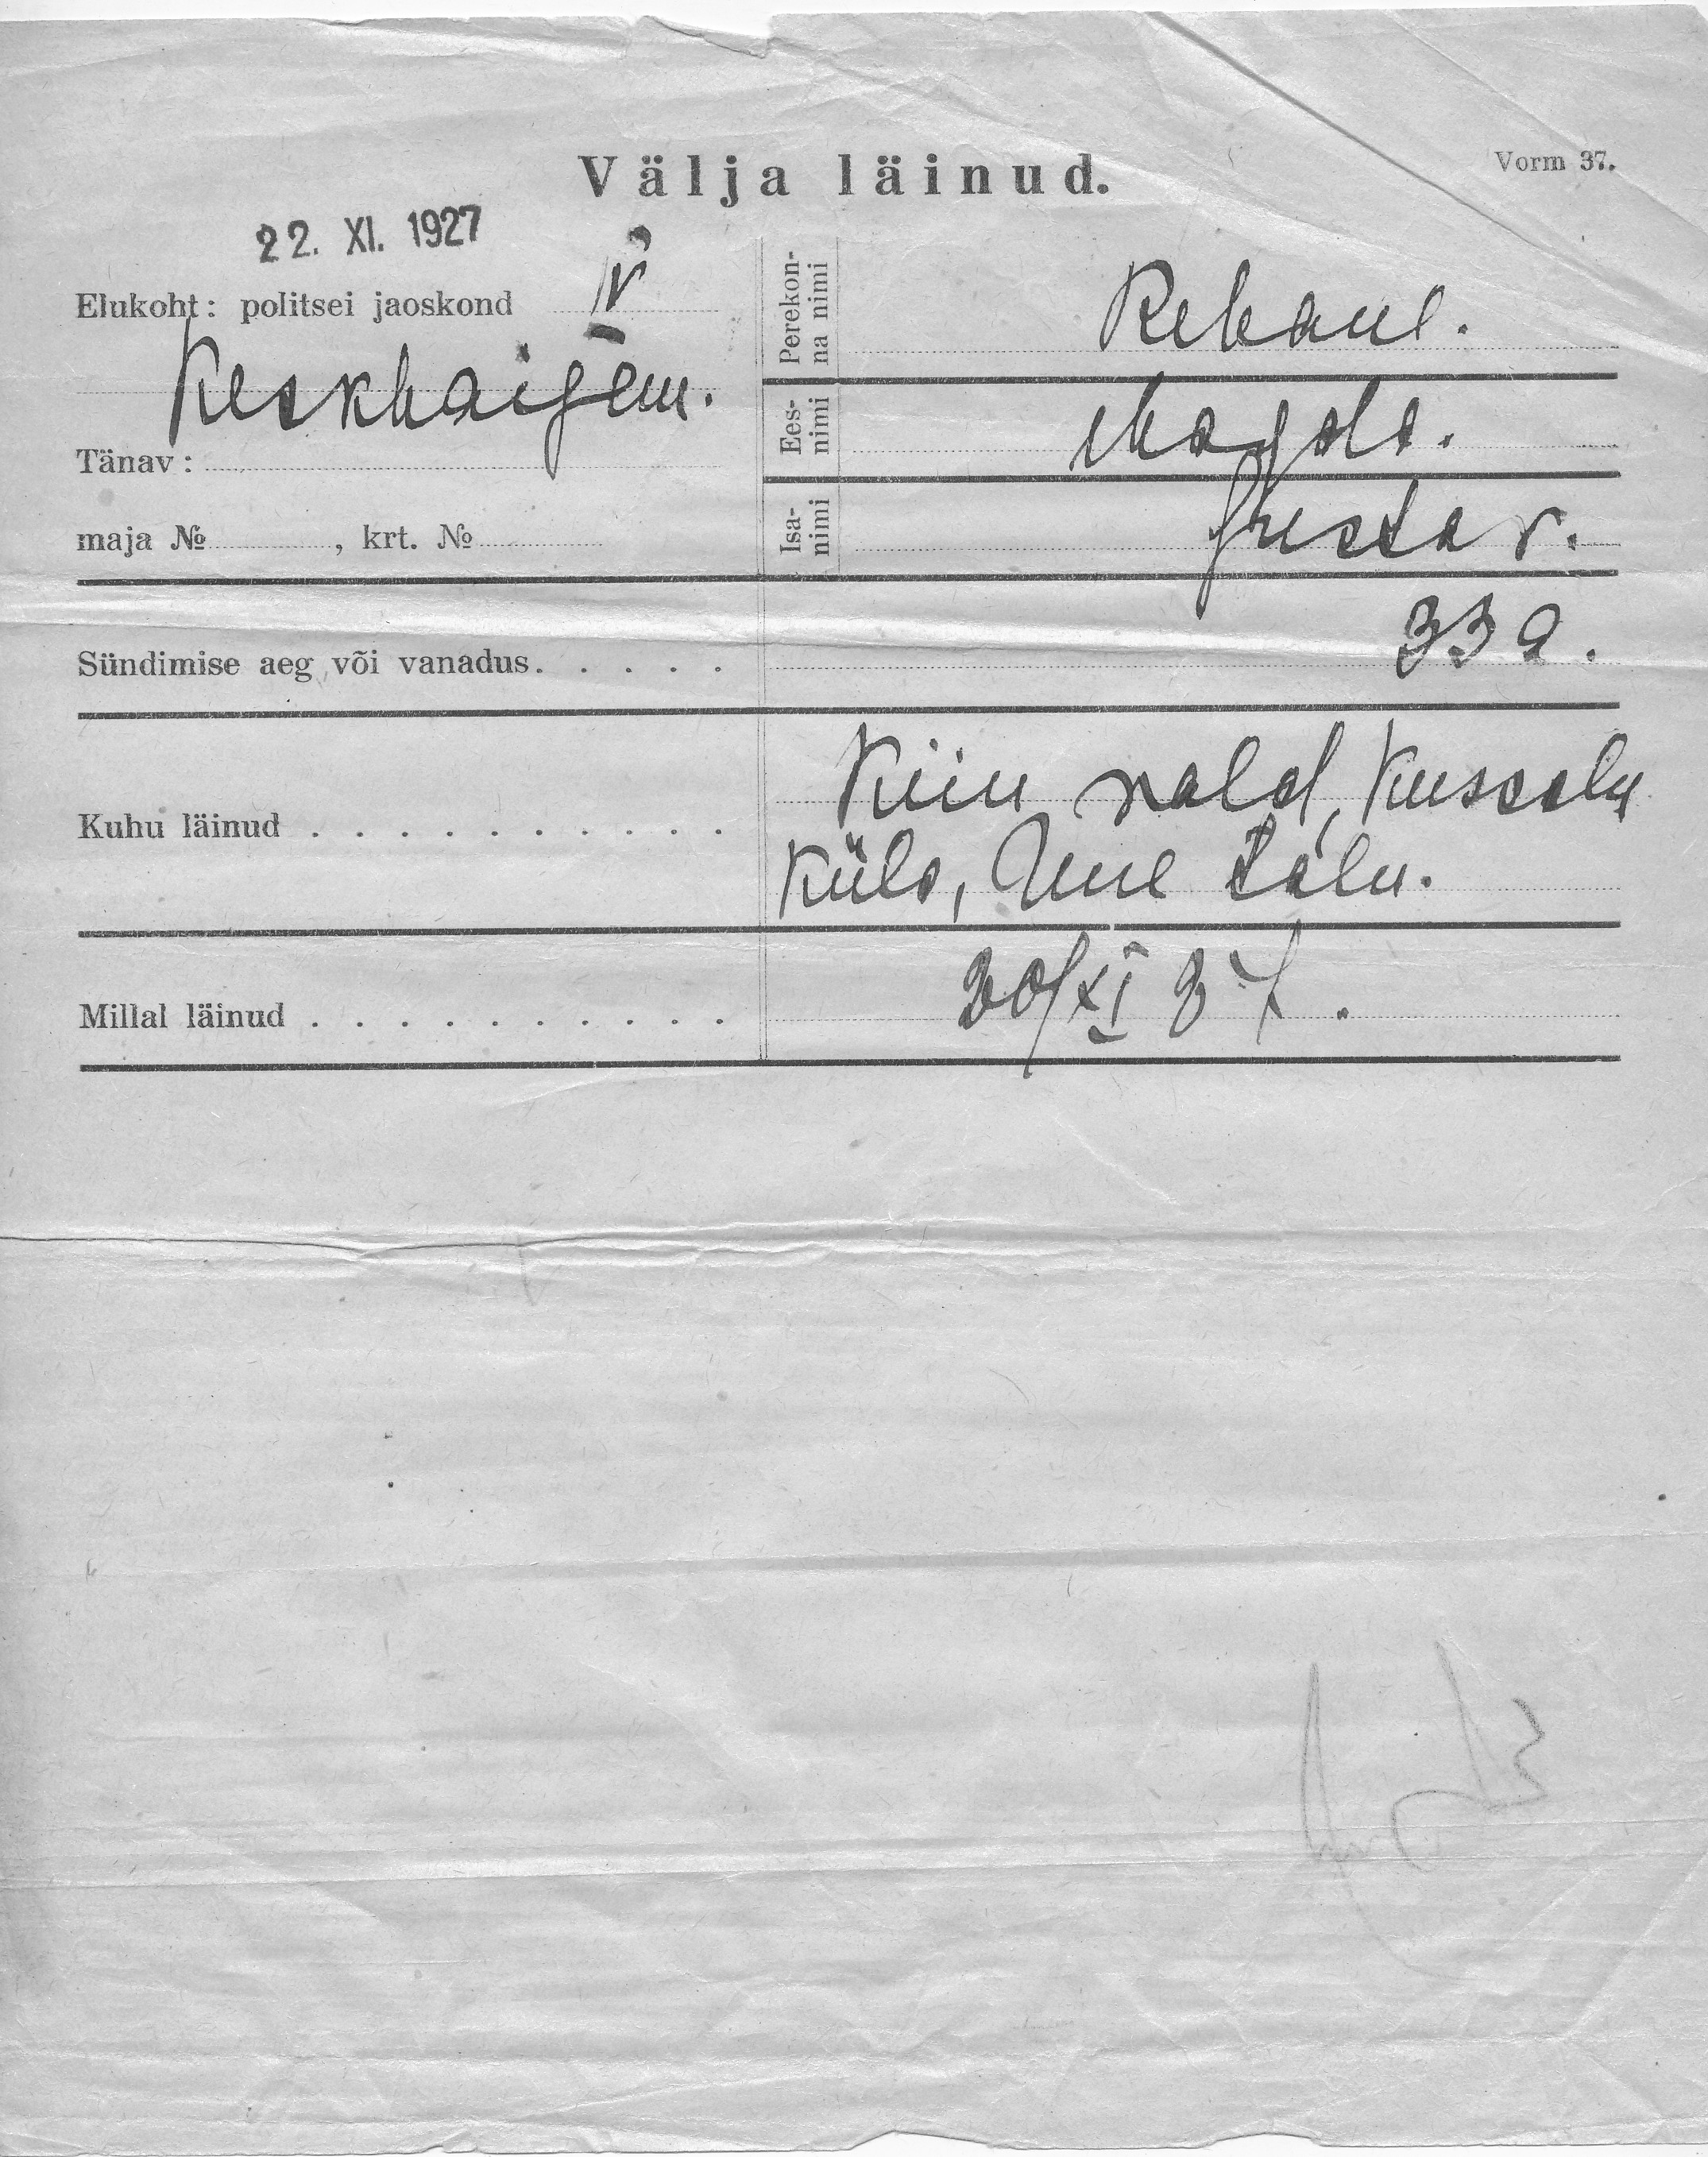 Välja läinud.
Vorm 37.
22. XI. 1927
Elukoht: politsei jaoskond IV
Keskhaigem.
Tänav:
maja № , krt. №
Perekon-
na nimi
Rebane.
Ees-
nimi
Magda.
Isa-
nimi
Gustav.
Sündimise aeg või vanadus. . . . .
33 a.
Kuhu läinud . . . . . . . . . .
Kiiu vald, Kuusalu
küla, Uue talu.
Millal läinud . . . . . . . . . .
20/XI 27.